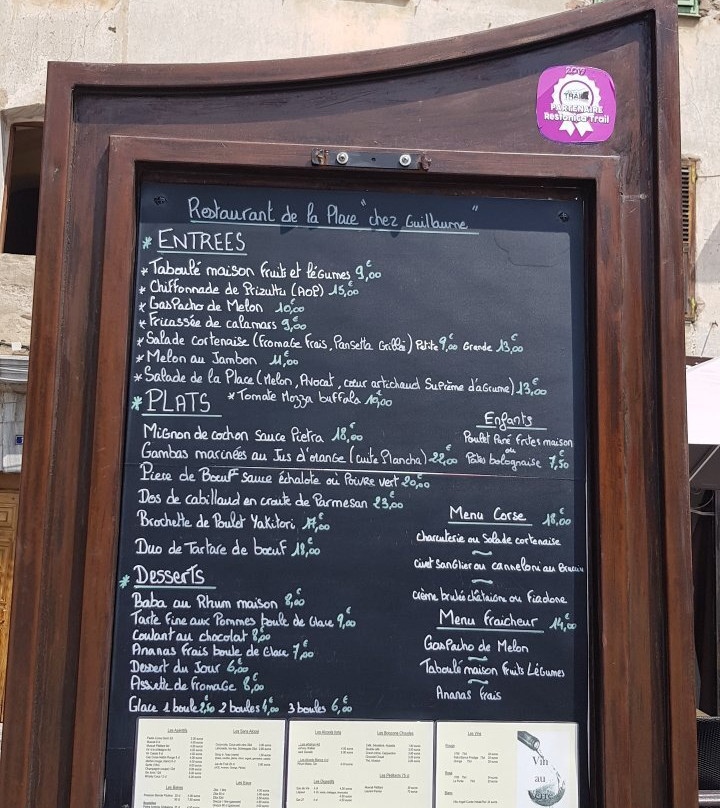 2017
TRAIL
PARTENAIRE
Restonica Trail
Restaurant de la Place "chez Guillaume"
* ENTREES
* Taboulé maison Fruits et légumes 9,00€
* Chiffonnade de Prizuttu (AOP) 15,00€
* GasPacho de Melon 10,00€
* Fricassée de calamars 9,00€
* Salade cortenaise (Fromage Frais, Pansetta Grillée) Petite 9,00€ Grande 13,00€
* Melon au Jambon 11,00€
* Salade de la Place (Melon, Avocat, cœur artichaud Suprême d'agrume) 13,00€
* Tomate Mozza buffala 10,00€
* PLATS
Mignon de cochon sauce Pietra 18,00€
Gambas marinées au Jus d'orange (cuite Plancha) 22,00€
Piece de Boeuf sauce échalote où Poivre vert 20,00€
Dos de cabillaud en croute de Parmesan 23,00€
Brochette de Poulet Yakitori 17,00€
Duo de Tartare de boeuf 18,00€
Enfants
Poulet Pané frites maison
ou
Pâtes bolognaise 7,50€
Menu Corse 18,00€
charcuterie ou Salade cortenaise
civet sanglier ou canneloni au Brocciu
crème brulée châtaigne ou Fiadone
Menu Fraicheur 14,00€
GasPacho de Melon
Taboulé maison Fruits Légumes
Ananas frais
* Desserts
Baba au Rhum maison 8,00€
Tarte Fine aux Pommes boule de Glace 9,00€
Coulant au chocolat 8,00€
Ananas Frais boule de Glace 7,00€
Dessert du Jour 6,00€
Assiette de fromage 8,00€
Glace 1 boule 2,50 2 boules 4,00€ 3 boules 6,00€
Les Apéritifs
Les Sans Alcool
Les Boissons Chaudes
Les Vins
Les Bières
Les Digestifs
Vin
au
Verre